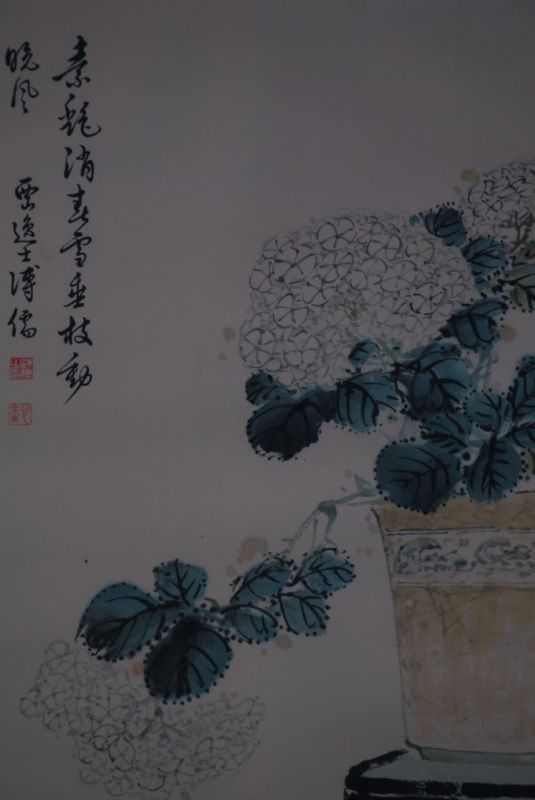 素毳消春雪垂枝動
晚風
西山逸士溥儒